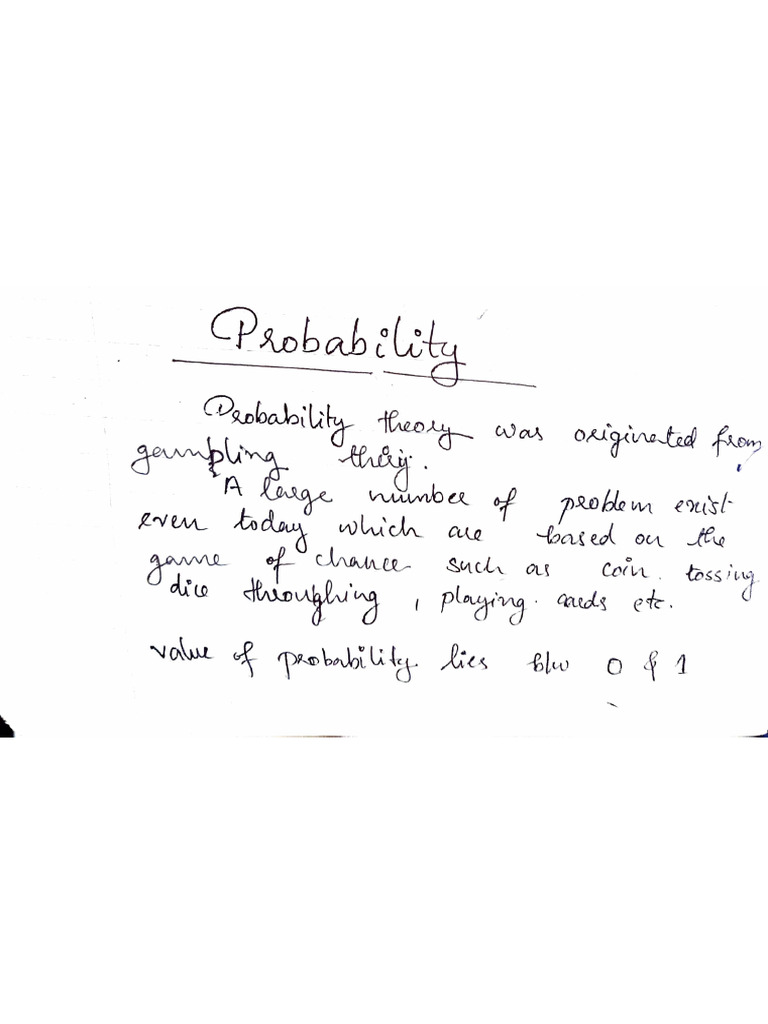 Probability
Probability theory was originated from
gambling theory.
A large number of problem exist
even today which are based on the
game of chance such as coin tossing
dice throughing, playing cards etc.
value of probability lies b/w 0 & 1